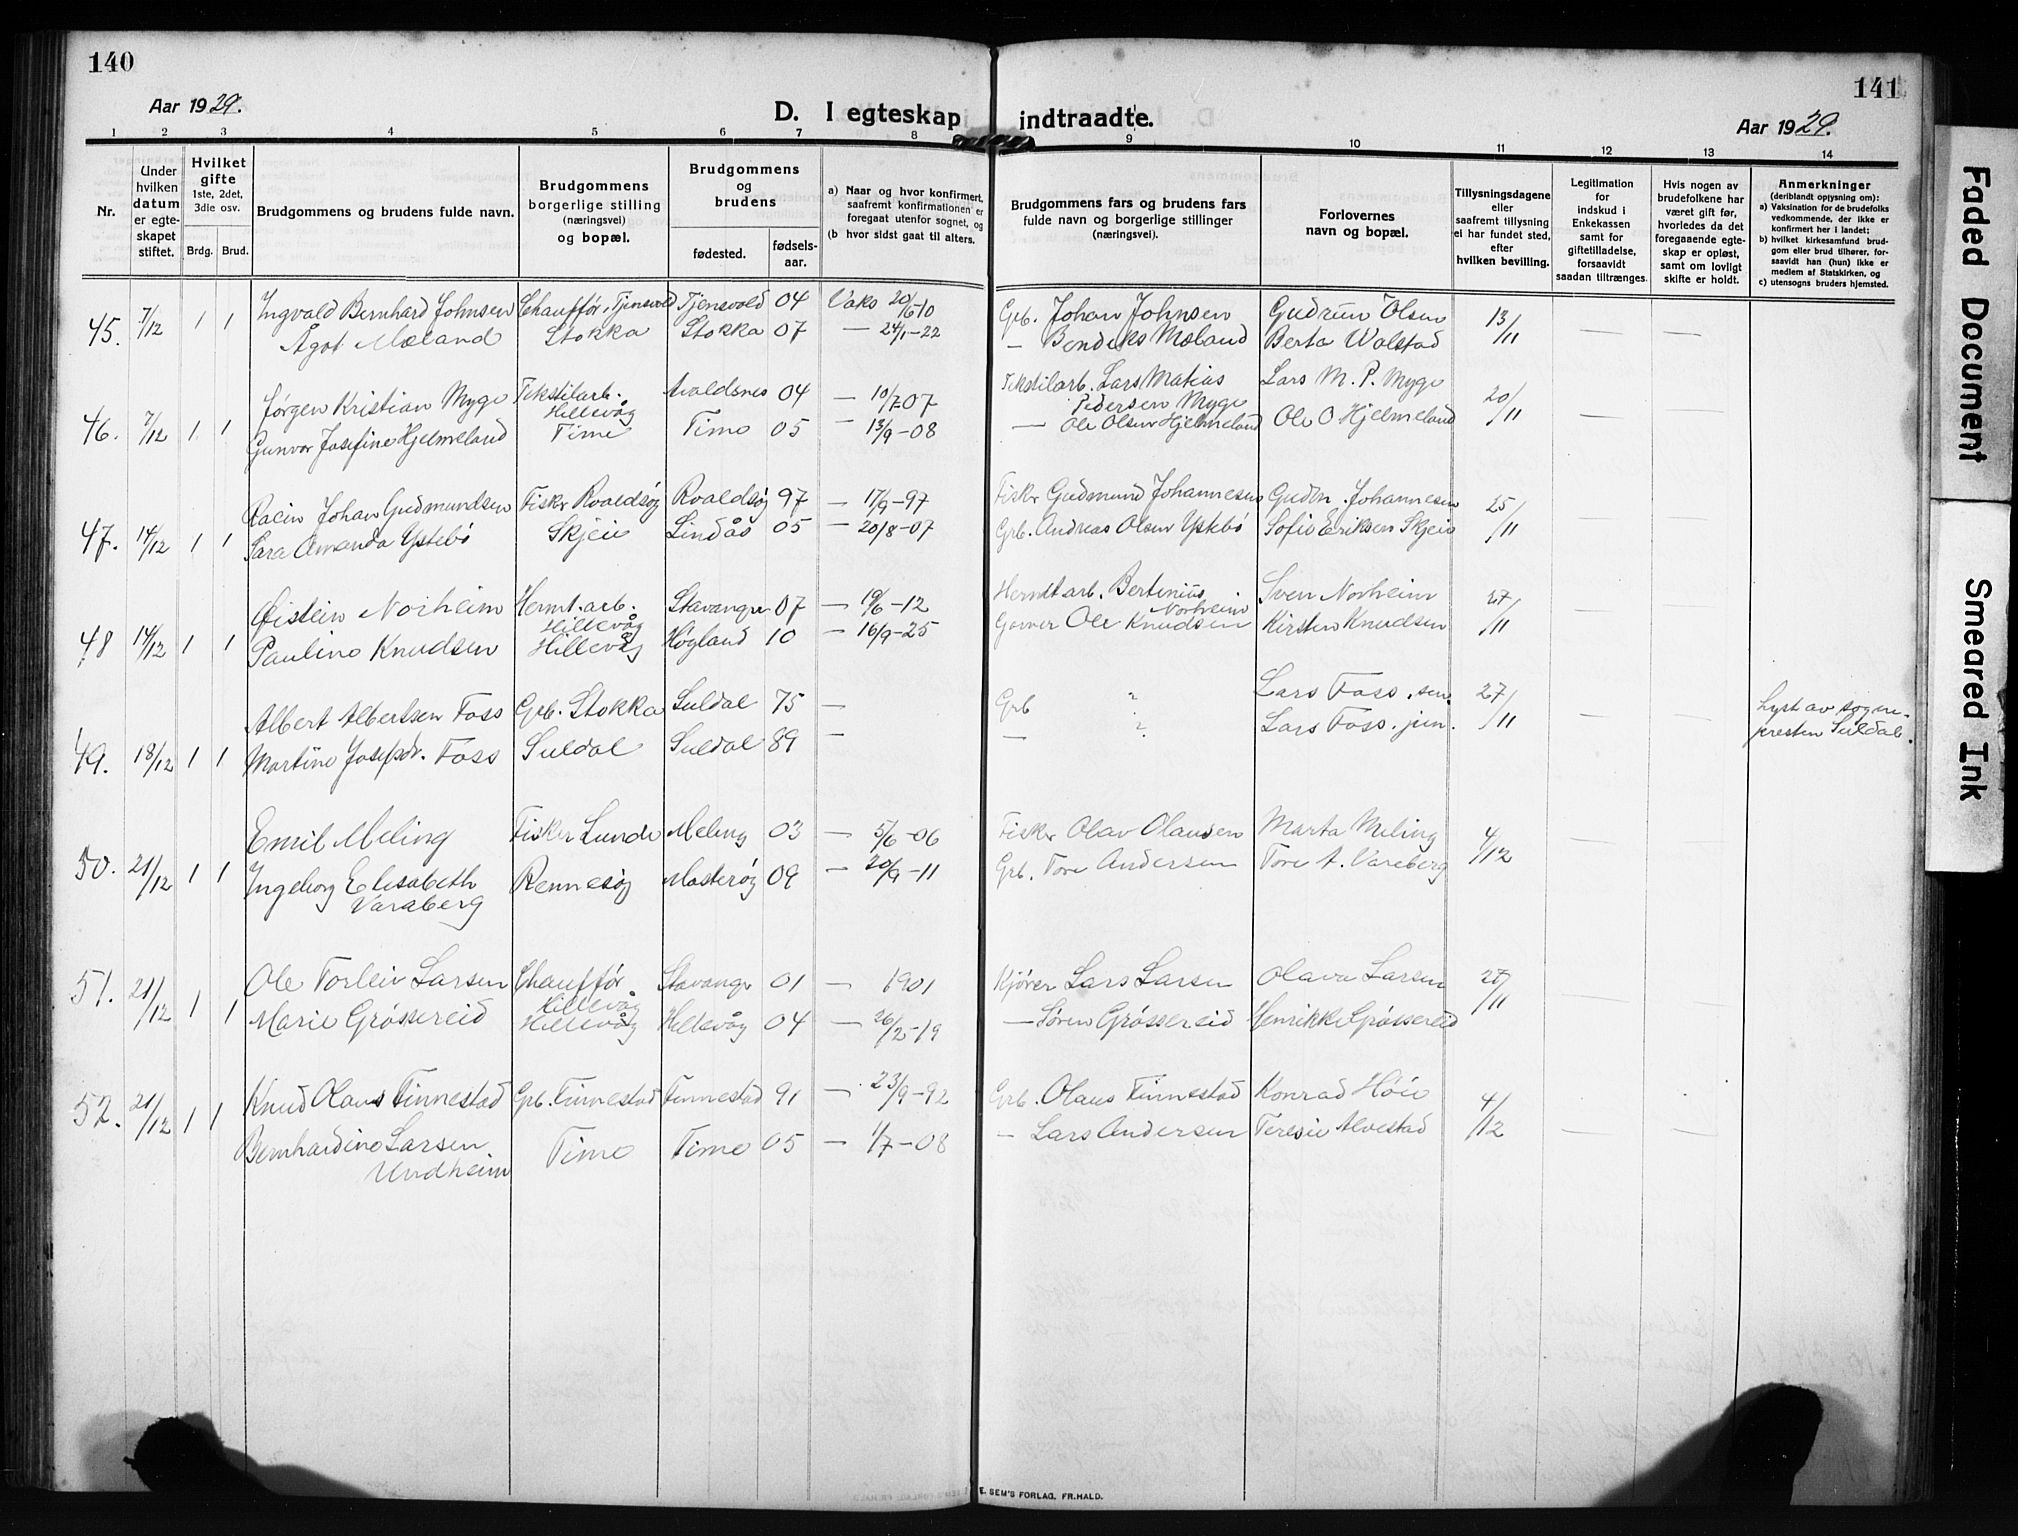 140
Aar 1929.
D. I egteskap indtraadte.
141
Aar 1929.
1 2 3 4 5 6 7 8 9 10 11 12 13 14
Nr.
Under hvilken datum er egteskapet stiftet.
Hvilket gifte
1ste, 2det, 3die osv.
Brdg. Brud.
Brudgommens og brudens fulde navn.
Brudgommens borgerlige stilling (næringsvei) og bopæl.
Brudgommens og brudens
fødested. fødsels-aar.
a) Naar og hvor konfirmert, saafremt konfirmationen er foregaat utenfor sognet, og
(b hvor sidst gaat til alters.
Brudgommens fars og brudens fars fulde navn og borgerlige stillinger (næringsvei).
Forlovernes navn og bopæl.
Tillysningsdagene eller saafremt tillysning ei har fundet sted, efter hvilken bevilling.
Legitimation for indskud i Enkekassen samt for giftetilladelse, forsaavidt saadan tiltrænges.
Hvis nogen av brudefolkene har været gift før, hvorledes da det foregaaende egteskap er opløst, samt om lovligt skifte er holdt.
Anmerkninger
(deriblandt opjysning om):
a) Vaksination for de brudefolks vedkommende, der ikke er konfirmert her i landet;
b) hvilket kirkesamfund brudgom eller brud tilhører, forsaavidt han (hun) ikke er medlem af Statskirken, og
c) utensogns bruders hjemsted.
45. 7/12 1 1 Ingvald Bernhard Johnsen Chauffør, Tjensvold Tjensvold 04 Vaks 20/6 10 Grb. Johan Johnsen Gudrun Olsen 13/11 — —
Ågot Mæland Stokka Stokka 07 — 24/1-22 — Bendiks Mæland Berta Walstad
46. 7/12 1 1 Jørgen Kristian Myge Tekstilarb. Hillevåg Avaldsnes 04 — 10/7 07 Tekstilarb. Lars Matias Pedersen Myge Lars M. P. Myge 20/11 — —
Gunvor Josefine Hjelmeland Time Time 05 — 13/9-08 — Ole Olsen Hjelmeland Ole O Hjelmeland
47. 14/12 1 1 Johan Gudmundsen Fisker Roaldsøy Roaldsøy 97 — 17/9-97 Fisker Gudmund Johannesen Gudm. Johannesen 25/11 — —
Sara Amanda Ystebø Skjeie Lindås 05 — 20/8-07 Grb. Andreas Olsen Ystebø Sofie Eriksen Skjeie
48 14/12 1 1 Øistein Norheim Hermt. arb. Hillevåg Stavanger 07 — 19/6-12 Hermt arb. Bertinius Norheim Sven Norheim 27/11 — —
Pauline Knudsen Hillevåg Høgland 10 — 16/9-25 Garver Ole Knudsen Kirsten Knudsen
49. 18/12 1 1 Albert Albertsen Foss Grb. Stokka Suldal 75 — Grb ? Lars Foss, sen. 27/11 — — Lyst av sogne-
Martine Josefsdr. Foss Suldal Suldal 89 — — ? Lars Foss. jun. presten Suldal.
50. 21/12 1 1 Emil Meling Fisker Lunde Meling 03 — 5/6-06 Fisker Olav Olausen Marta Meling 4/12 — —
Ingeborg Elisabeth Varaberg Rennesøy Mosterøy 09 — 20/9-11 Grb. Tore Andersen Tore A. Vareberg
51. 21/12 1 1 Ole Torleiv Larsen Chauffør Hillevåg Stavanger 01 — 1901 Kjører Lars Larsen Olava Larsen 27/11 — —
Marie Grøssereid Hillevåg Hillevåg 04 — 26/2-19 — Søren Grøssereid Henrikke Grøssereid
52. 21/12 1 1 Knud Olaus Finnestad Grb. Finnestad Finnestad 91 — 23/9-92 Grb. Olaus Finnestad Konrad Høie 4/12 — —
Bernhardine Larsen Undheim Time Time 05 — 1/7-08 — Lars Andersen Teresie Alvestad
E. SEM'S FORLAG, FR.HALD.
Faded Document
Smeared Ink